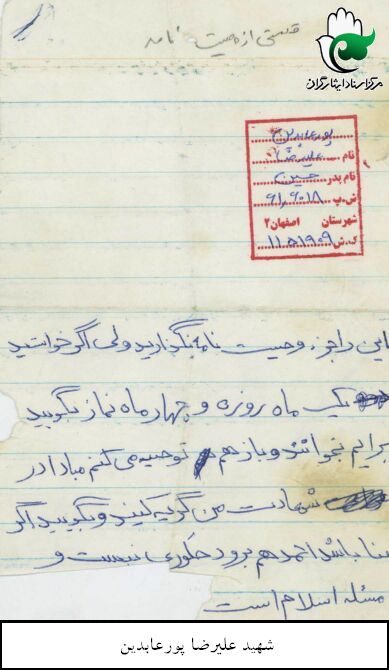 قسمتی از وصیت نامه
مرکز اسناد ایثارگران
پورعابدین
نام علیرضا
نام پدر حسین
ش.پ ۶۱۰۶۰۱۸
شهرستان اصفهان۲
ک.ش ۱۱۵۱۹۰۹
این را جزء وصیت نامه نگذارید ولی اگر خواستید
یک ماه روزه و چهار ماه نماز بگویید
برایم بخوانند و باز هم توصیه می کنم مبادا در
شهادت من گریه کنید و بگویید اگر
بنا باشد احمد هم برود طوری نیست و
مسئله اسلام است
شهید علیرضا پورعابدین